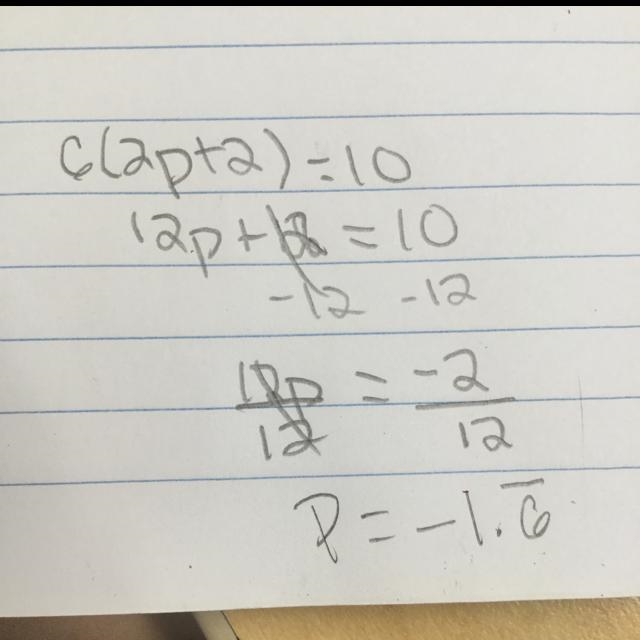 6(2p+2)=10
12p+12=10
-12 -12
12p/12 = -2/12
P=-1.6̅